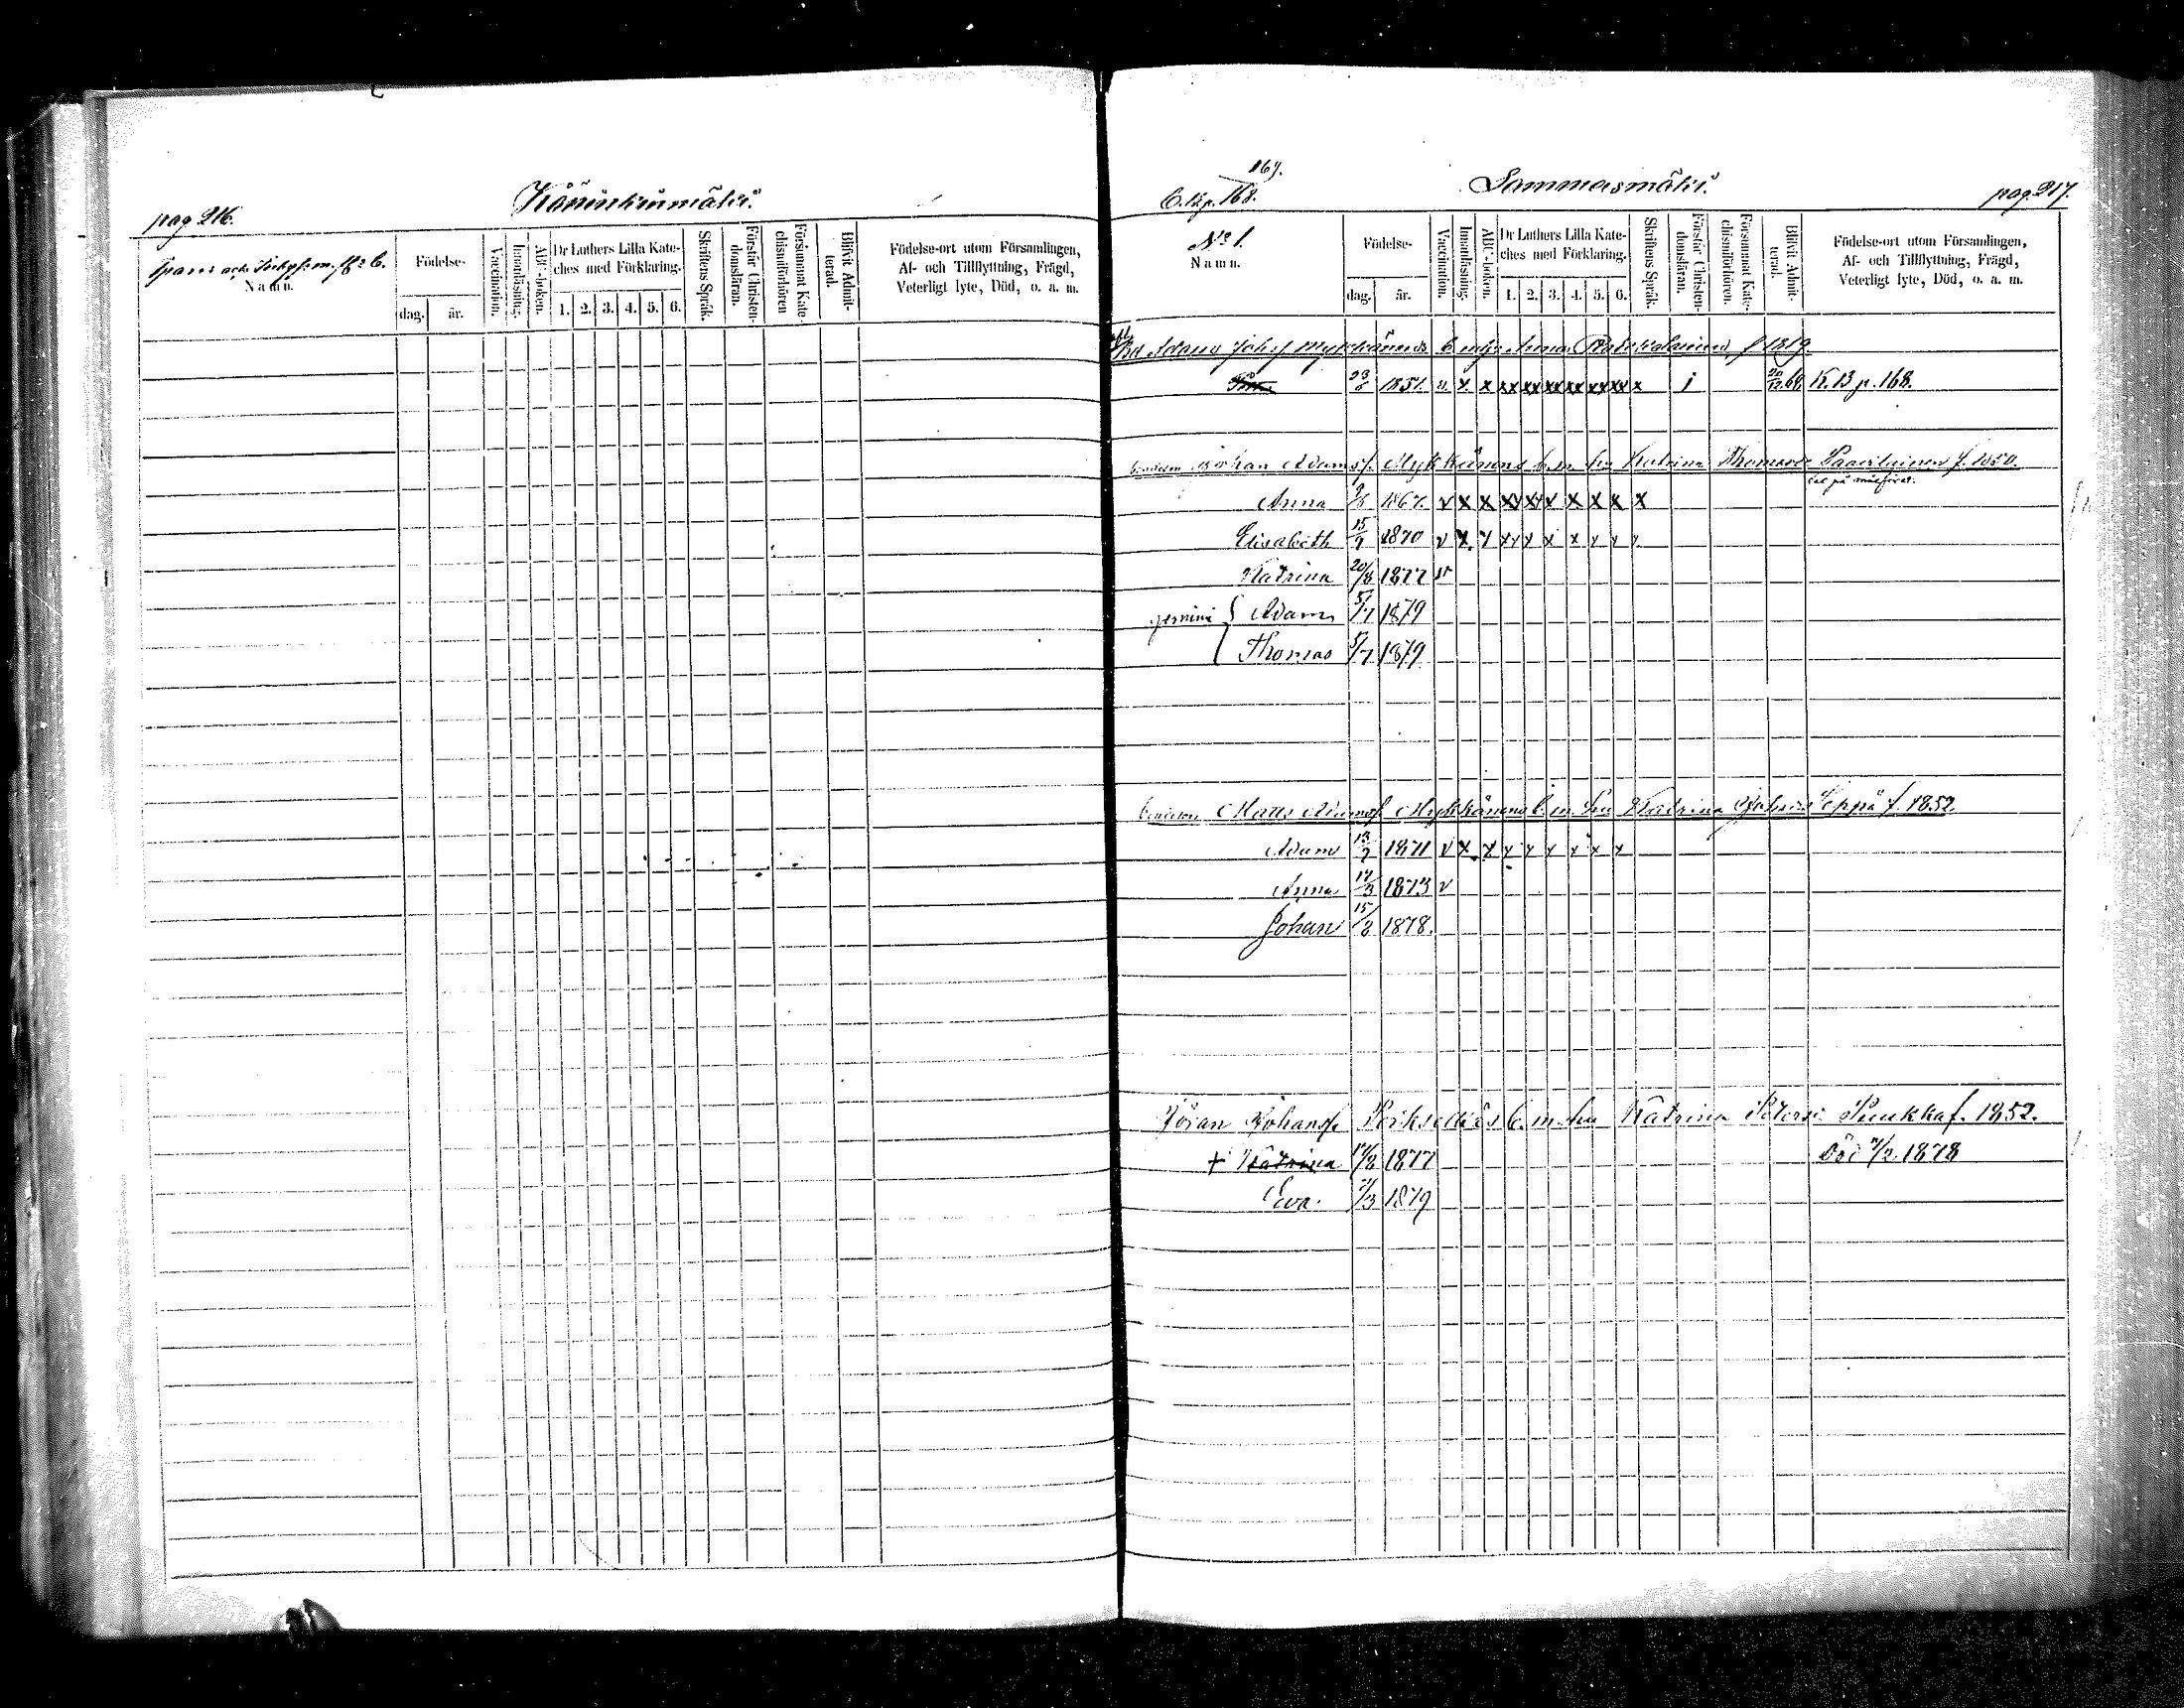 pag 216.
Könönkinmäki.
och
N a m n.
Födelse-
dag.
år.
Vaccination.
Innanläsning.
ABC-boken.
Dr Luthers Lilla Kate-
ches med Förklaring.
1. 2. 3. 4. 5. 6.
Skriftens Språk.
Förstår Christen-
domsläran.
Försummat Kate-
chismiförhören
Blifvit Admit-
terad.
Födelse-ort utom Församlingen,
Af- och Tillflyttning, Frägd,
Veterligt lyte, Död, o. a. m.
167.
168.
Sammasmäki.
pag. 217.
No 1.
N a m n.
Födelse-
dag.
år.
Vaccination.
Innanläsning.
ABC-boken.
Dr Luthers Lilla Kate-
ches med Förklaring.
1. 2. 3. 4. 5. 6.
Skriftens Språk.
Förstår Christen-
domsläran.
Försummat Kate-
chismiförhören.
Blifvit Admit-
terad.
Födelse-ort utom Församlingen,
Af- och Tillflyttning, Frägd,
Veterligt lyte, Död, o. a. m.
Adams Johsf Mykkänens Anna f 1819.
23/6 1851. v x x xx xx xx xx xx xx x j K. B p. 168.
Johan Adamsf. Mykkänens b. m. hu Katrina Thomasd. Paavilainen f. 1850.
Anna 1867. v x x xx xx x x x x x
Elisabeth 15/9 1870 v x x xx x x x x x x
Katrina 20/8 1877 v
gemini { Adam 5/7 1879
Thomas 5/7 1879
Matts Adamsf. Mykkänens b. m. hu Katrina Johansd. Seppä f. 1852
Adam 13/7 1871 v x x x x x x x x
Anna 14/3 1873 v
Johan 15/8 1878.
Jöran Johansf b. m. hu Katrina Petersd. Puukka f. 1852.
+ Katrina 17/8 1877 Död 7/2 1878
Eva. 7/3 1879